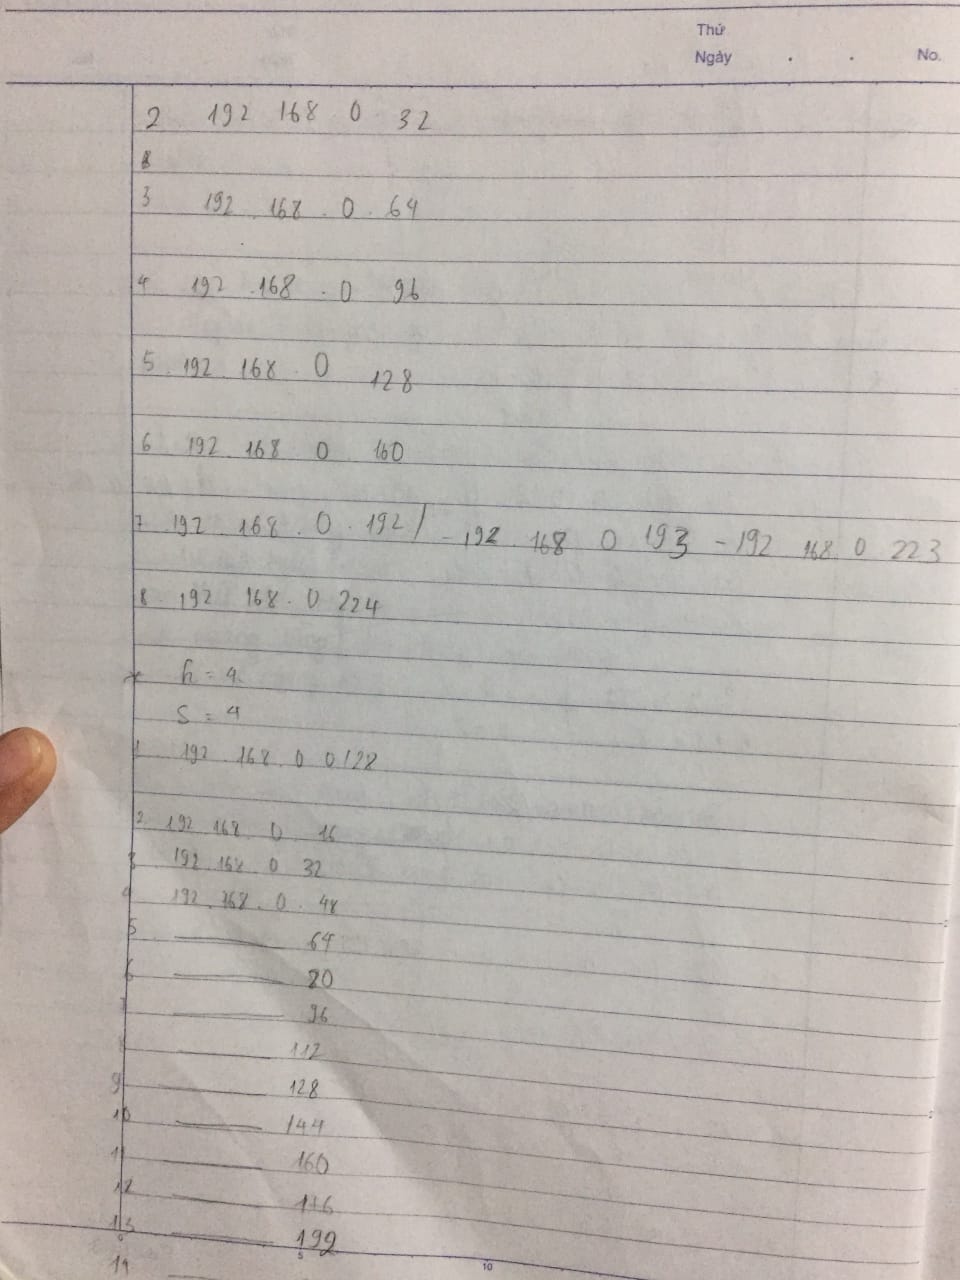 Thứ
Ngày . . No.
2 192 168 0 32
3 192 . 168 . 0 . 64
4 192 . 168 . 0 96
5 . 192 . 168 . 0 128
6 192 . 168 0 160
7 . 192 . 168 . 0 . 192 / - 192 . 168 0 193 - 192 168 0 223
8 . 192 168 . 0 224
* h = 4
S = 4
1 192 . 168 . 0 0/28
2 192 168 . 0 16
3 192 . 168 0 32
4 192 . 168 . 0 . 48
5 64
6 80
7 96
112
9 128
10 144
11 160
12 176
13 192
5 10
14